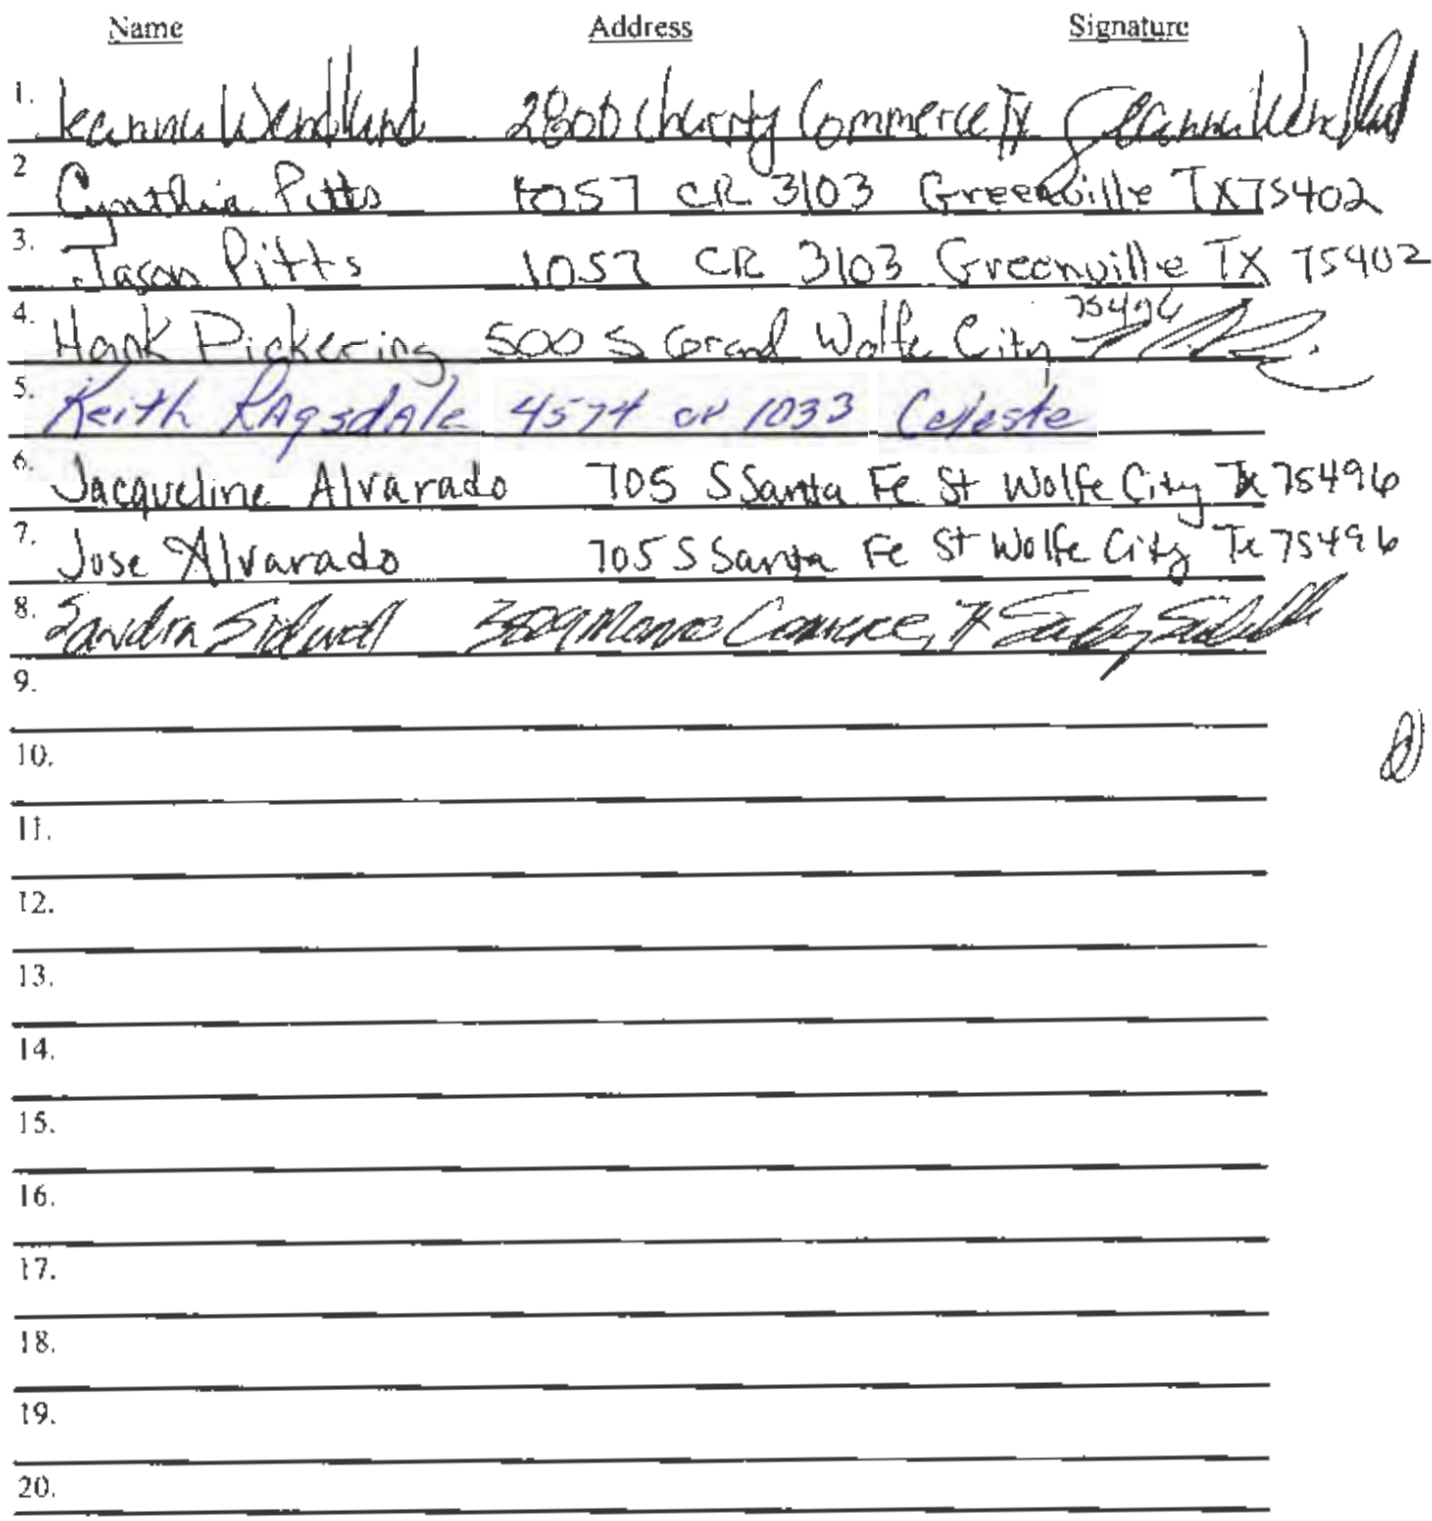 Name Address Signature
1. Jeanna Wendland 2800 Charity Commerce TX Jeanna Wendland
2 Cynthia Pitts 1057 CR 3103 Greenville TX 75402
3. Jason Pitts 1057 CR 3103 Greenville TX 75402
4. Hank Pickering 500 S Grand Wolfe City 75496
5. Keith RAgsdAle 4574 CR 1033 Celeste
6. Jacqueline Alvarado 705 S Santa Fe St Wolfe City Tx 75496
7. Jose Alvarado 705 S Santa Fe St Wolfe City Tx 75496
8. Sandra Sidwell 3809 Monroe Commerce, TX
9.
10.
11.
12.
13.
14.
15.
16.
17.
18.
19.
20.